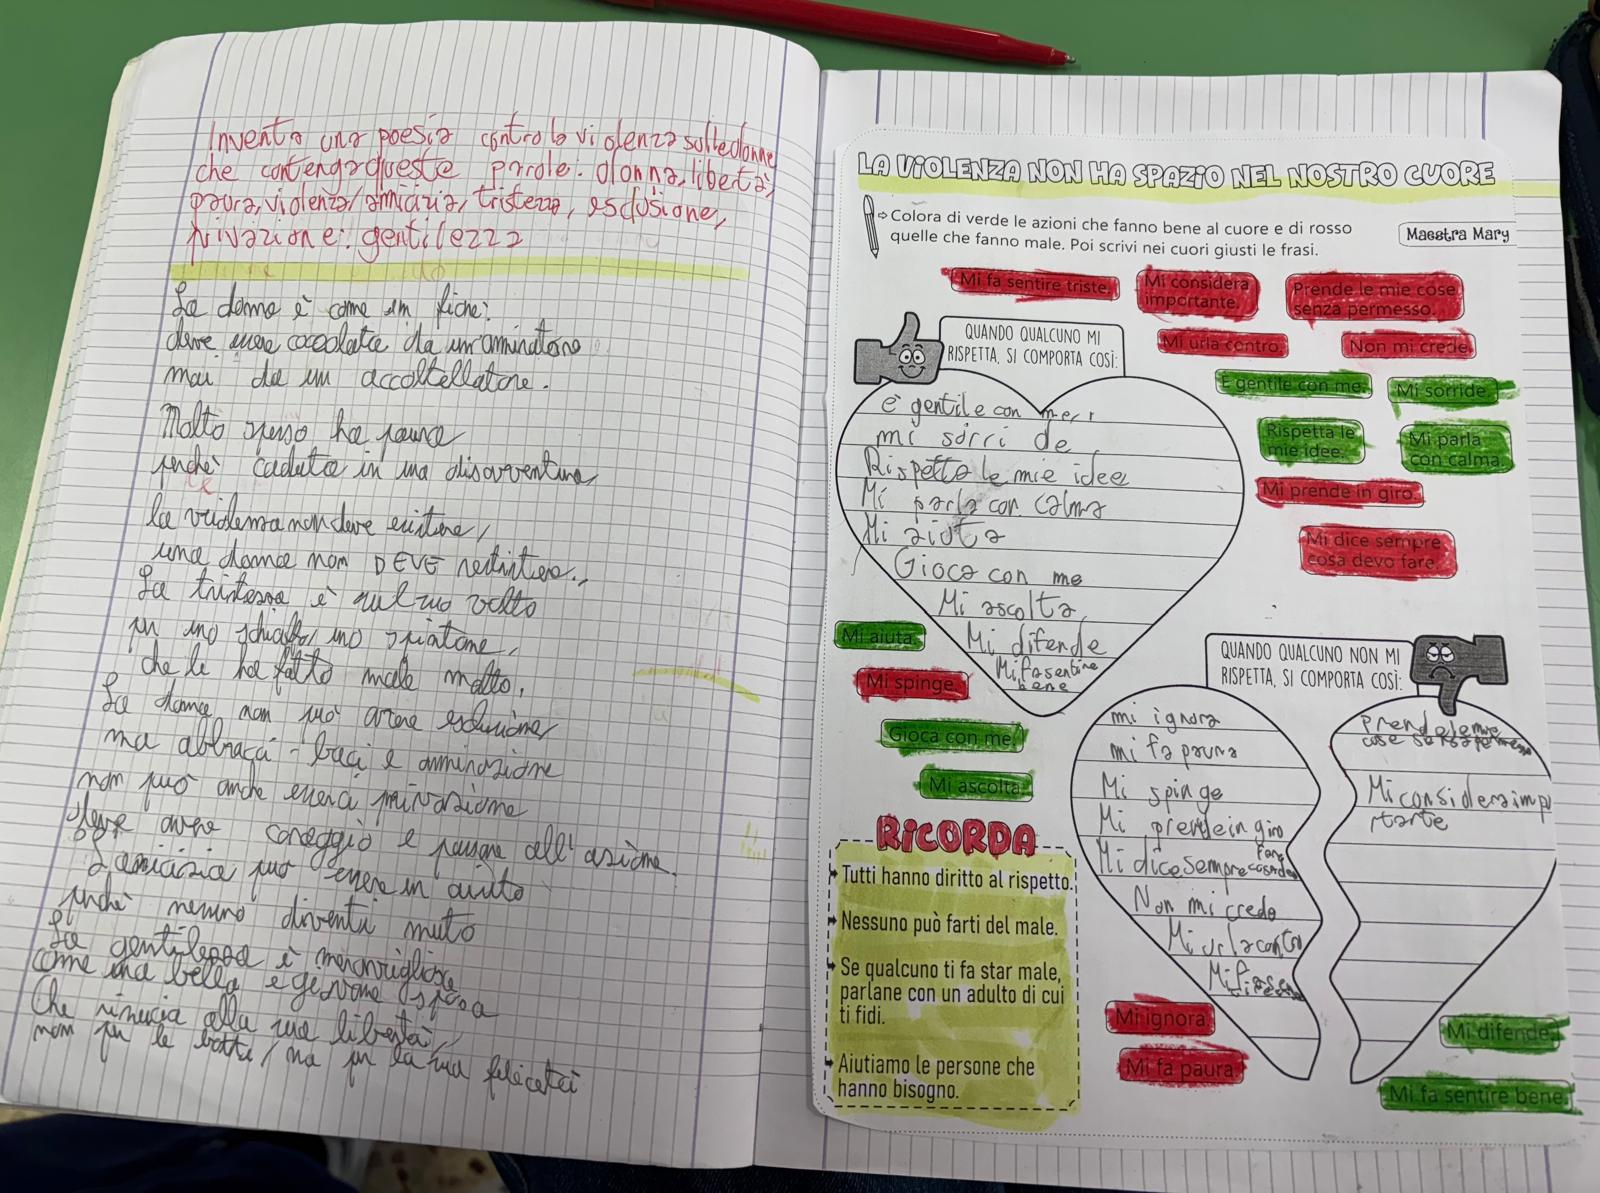 Inventa una poesia contro la violenza sulle donne
che contenga queste parole: donna, libertà,
paura, violenza, amicizia, tristezza, esclusione,
privazione: gentilezza
La donna è come un fiore:
deve essere coccolata da un amminatore
mai da un accoltellatore.
Molto spesso ha paura
perchè caduta in una disavventura
la violenza non deve esistere,
una donna non DEVE resistere.
La tristezza è sul suo volto
per uno schiaffo, uno spintone,
che le ha fatto male molto.
La donna non può avere esclusione
ma abbracci - baci e amminazione
non può anche esserci privazione
deve avere coraggio e passare all'azione.
L'amicizia può essere un aiuto
perchè nessuno diventi muto
La gentilezza è meravigliosa
come una bella e giovane sposa
Che rinuncia alla sua libertà,
non per le botte, ma per la sua felicità
LA VIOLENZA NON HA SPAZIO NEL NOSTRO CUORE
Colora di verde le azioni che fanno bene al cuore e di rosso
quelle che fanno male. Poi scrivi nei cuori giusti le frasi.
Maestra Mary
Mi fa sentire triste.
Mi considera
importante.
Prende le mie cose
senza permesso.
Mi urla contro.
Non mi crede.
È gentile con me.
Mi sorride.
Rispetta le
mie idee.
Mi parla
con calma.
Mi prende in giro.
Mi dice sempre
cosa devo fare.
QUANDO QUALCUNO MI
RISPETTA, SI COMPORTA COSÌ:
è gentile con me
mi sorri de
Rispetta le mie idee
Mi parla con calma
Mi aiuta
Gioca con me
Mi ascolta
Mi difende
Mi fa sentire
bene
Mi aiuta.
Mi spinge.
Gioca con me.
Mi ascolta.
QUANDO QUALCUNO NON MI
RISPETTA, SI COMPORTA COSÌ:
mi ignora
mi fa paura
Mi spinge
Mi prende in giro
Mi dice sempre cosa devo
fare
Non mi crede
Mi urla contro
Mi fa
Prende le mie
cose senza permesso
Mi considera impo
rtante
RICORDA
Tutti hanno diritto al rispetto.
Nessuno può farti del male.
Se qualcuno ti fa star male,
parlane con un adulto di cui
ti fidi.
Aiutiamo le persone che
hanno bisogno.
Mi ignora.
Mi fa paura.
Mi difende.
Mi fa sentire bene.